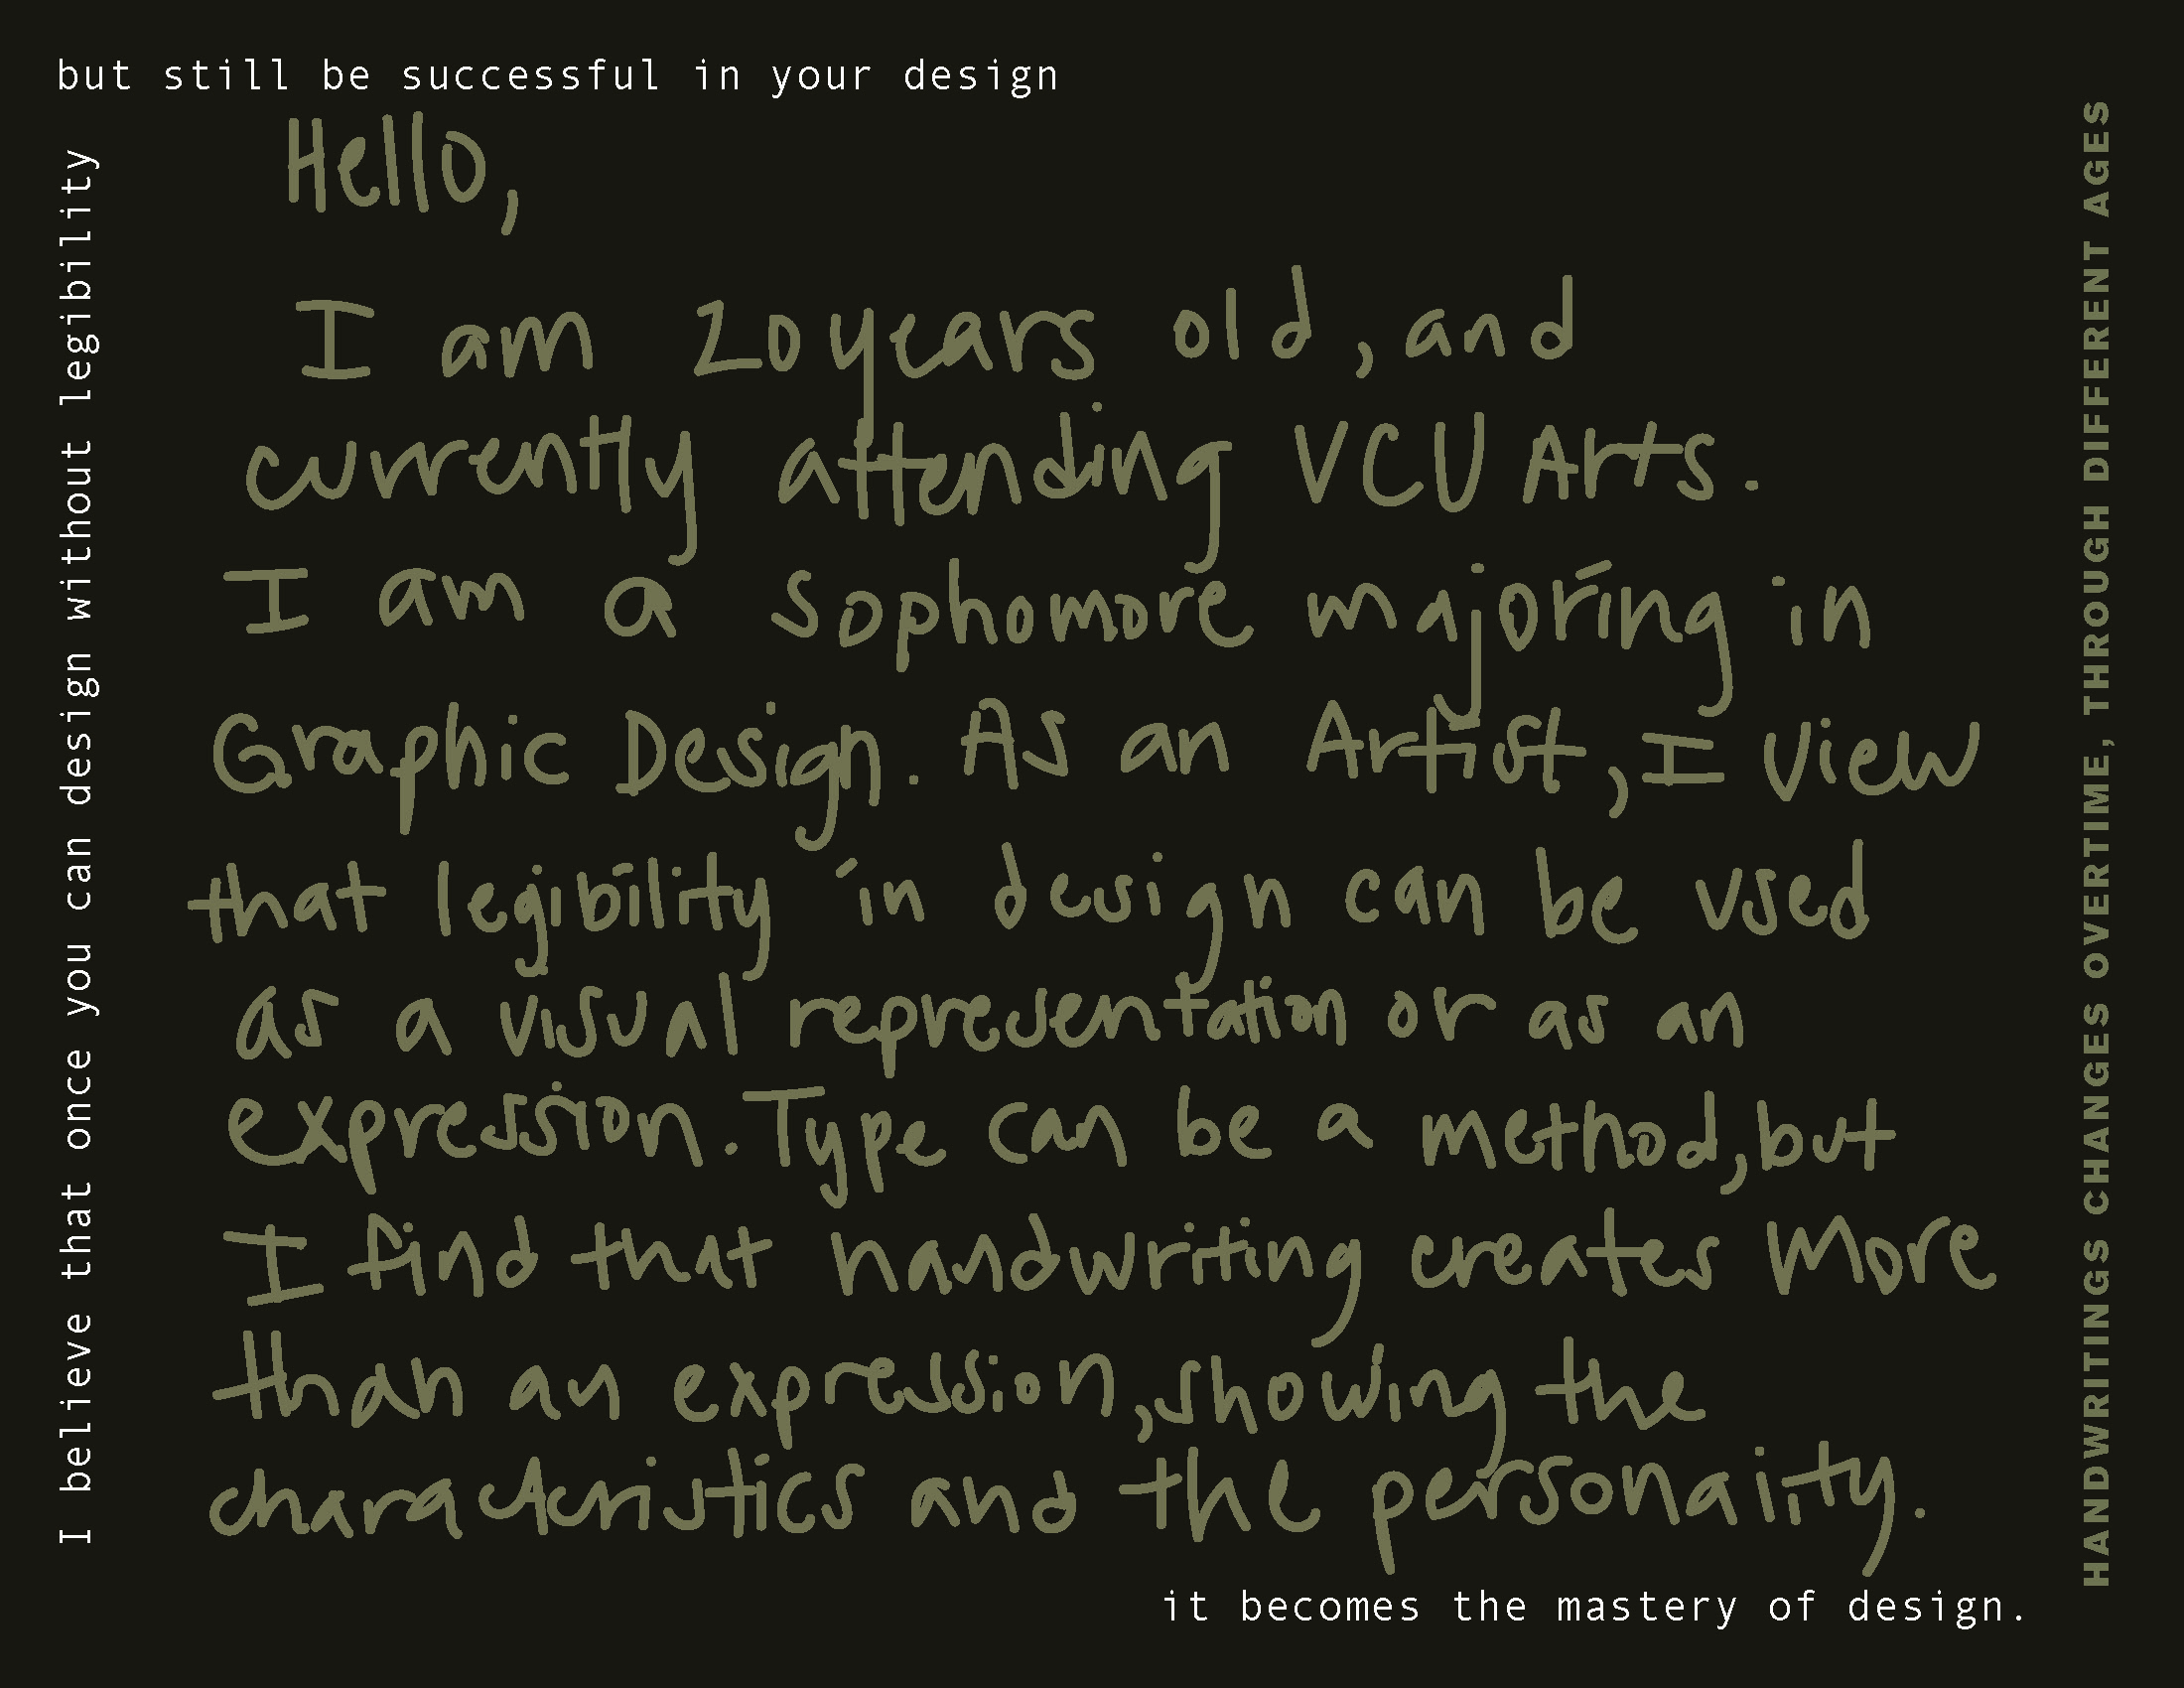 I believe that once you can design without legibility
but still be successful in your design
Hello,
I am 20 years old, and
currently attending VCU Arts.
I am a sophomore majoring in
Graphic Design. As an Artist, I view
that legibility in design can be used
as a visual representation or as an
expression. Type can be a method, but
I find that handwriting creates more
than an expression, showing the
characteristics and the personaiity.
it becomes the mastery of design.
HANDWRITINGS CHANGES OVERTIME, THROUGH DIFFERENT AGES